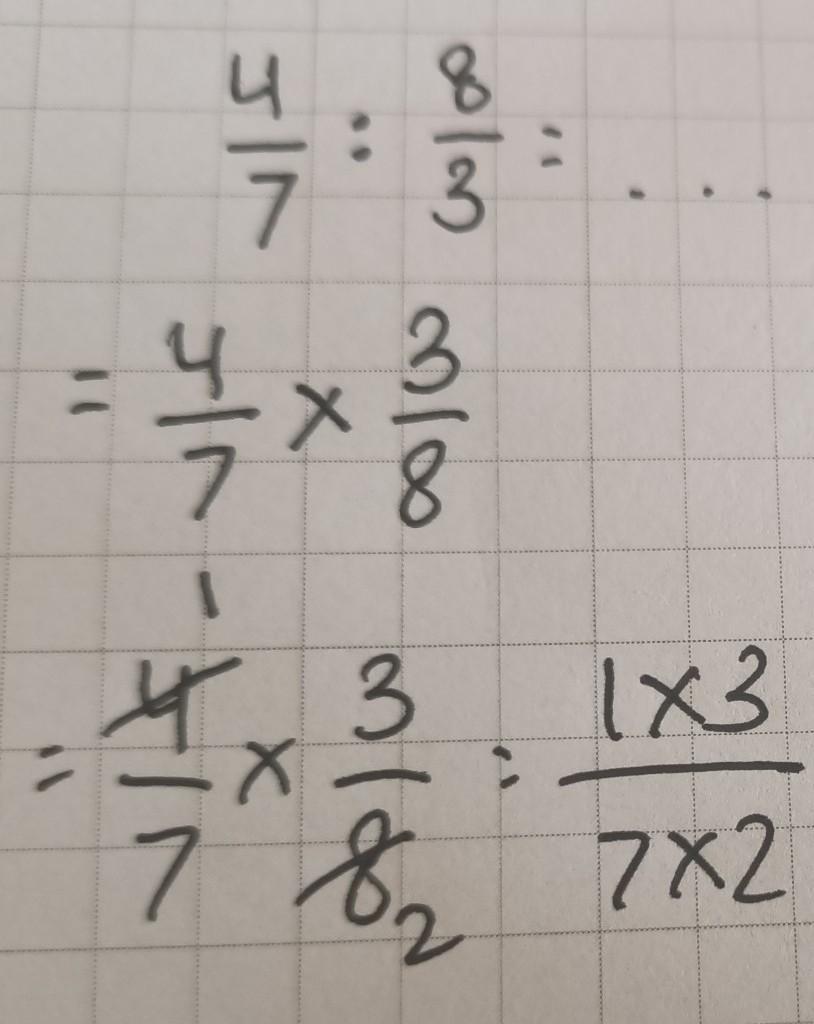 4/7 : 8/3 = . . .
= 4/7 × 3/8
1
= 4/7 × 3/8 = 1×3/7×2
2